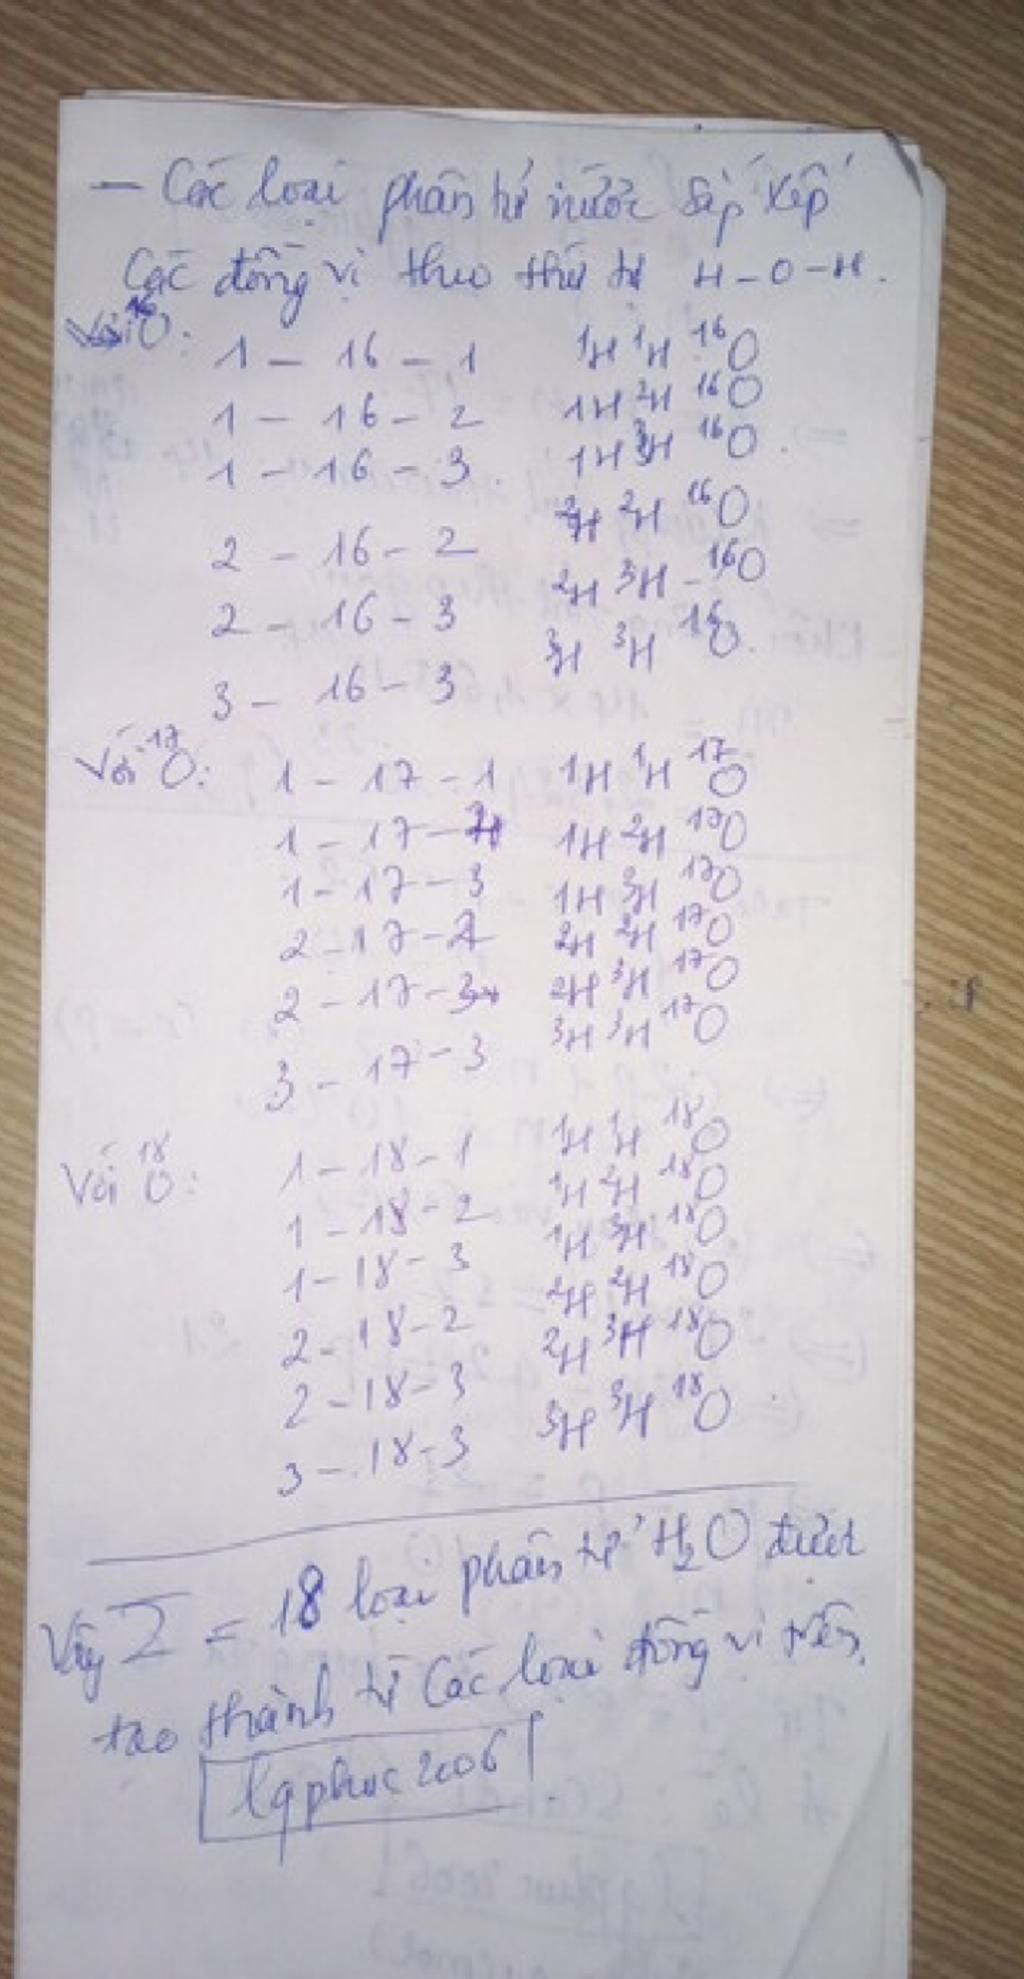 - Các loại phân tử nước sắp xếp
các đồng vị theo thứ tự H-O-H.
Với ¹⁶O:
1 - 16 - 1 ¹H ¹H ¹⁶O
1 - 16 - 2 ¹H ²H ¹⁶O
1 - 16 - 3. ¹H ³H ¹⁶O.
2 - 16 - 2 ²H ²H ¹⁶O
2 - 16 - 3 ²H ³H - ¹⁶O
3 - 16 - 3 ³H ³H ¹⁶O.
Với ¹⁷O: 1 - 17 - 1 ¹H ¹H ¹⁷O
1 - 17 - 2 ¹H ²H ¹⁷O
1 - 17 - 3 ¹H ³H ¹⁷O
2 - 17 - 2 ²H ²H ¹⁷O
2 - 17 - 3 ²H ³H ¹⁷O
3 - 17 - 3 ³H ³H ¹⁷O
Với ¹⁸O: 1 - 18 - 1 ¹H ¹H ¹⁸O
1 - 18 - 2 ¹H ²H ¹⁸O
1 - 18 - 3 ¹H ³H ¹⁸O
2 - 18 - 2 ²H ²H ¹⁸O
2 - 18 - 3 ²H ³H ¹⁸O
3 - 18 - 3 ³H ³H ¹⁸O
Vậy Σ = 18 loại phân tử H₂O được
tạo thành từ các loại đồng vị trên.
lqphuc2006